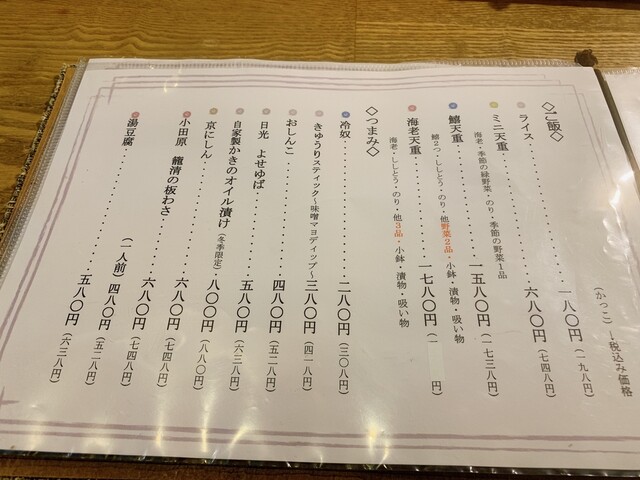 (かっこ)→税込み価格
◇ご飯◇
ライス・・・・・・・一八〇円(一九八円)
ミニ天重・・・・・・・六八〇円(七四八円)
海老・季節の緑野菜・のり・季節の野菜1品
鱚天重・・・・・・・一五八〇円(一七三八円)
鱚2つ・ししとう・のり・他野菜2品・小鉢・漬物・吸い物
海老天重・・・・・・・一七八〇円(一 円)
海老・ししとう・のり・他3品・小鉢・漬物・吸い物
◇つまみ◇
冷奴・・・・・・・二八〇円(三〇八円)
きゅうりスティック〜味噌マヨディップ〜三八〇円(四一八円)
おしんこ・・・・・・・四八〇円(五二八円)
日光 よせゆば・・・・・・・五八〇円(六三八円)
自家製かきのオイル漬け(冬季限定)八〇〇円(八八〇円)
京にしん・・・・・・・六八〇円(七四八円)
小田原 籠清の板わさ・・・・六八〇円(七四八円)
(一人前)四八〇円(五二八円)
湯豆腐・・・・・・・五八〇円(六三八円)